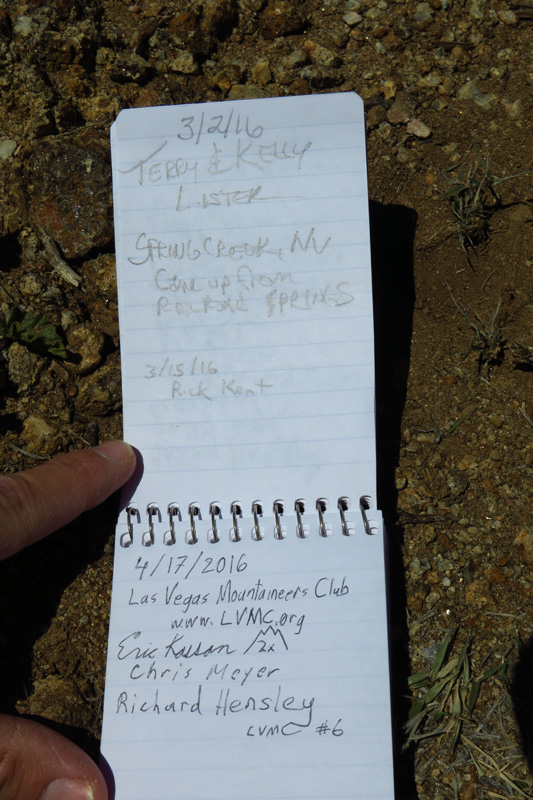 3/2/16
TERRY & KELLY
LISTER
SPRING CREEK, NV
Came up from
RAILROAD SPRINGS
3/15/16
Rick Kent
4/17/2016
Las Vegas Mountaineers Club
www.LVMC.org
Eric Kassan 2x
Chris Meyer
Richard Hensley
LVMC #6